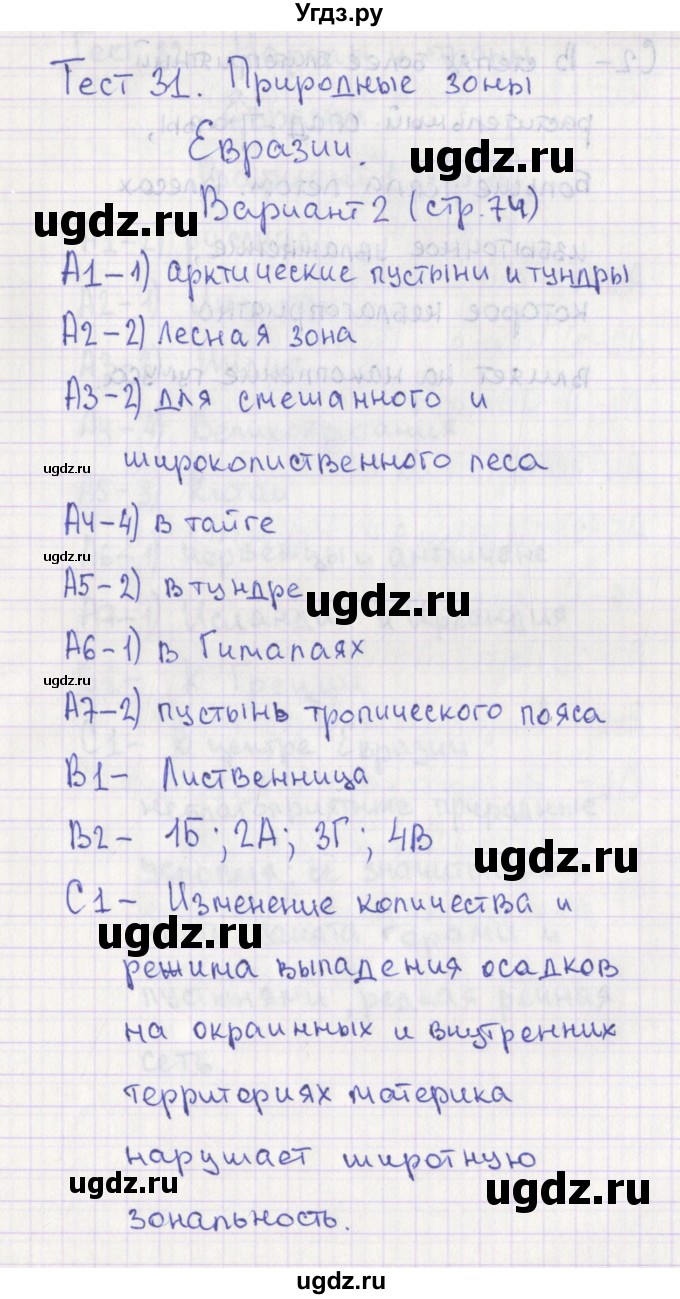 Угдз.ру
Тест 31. Природные зоны
Евразии.
ugdz.ru
ugdz.ru
Вариант 2 (стр. 74)
А1-1) арктические пустыни и тундры
А2-2) лесная зона
А3-2) для смешанного и
широколиственного леса
ugdz.ru
А4-4) в тайге
ugdz.ru
А5-2) в тундре
ugdz.ru
А6-1) в Гималаях
ugdz.ru
А7-2) пустынь тропического пояса
В1- Лиственница
В2- 1Б; 2А; 3Г; 4В
ugdz.ru
С1- Изменение количества и
ugdz.ru
режима выпадения осадков
на окраинных и внутренних
территориях материка
нарушает широтную
ugdz.ru
ugdz.ru
зональность.
ugdz.ru